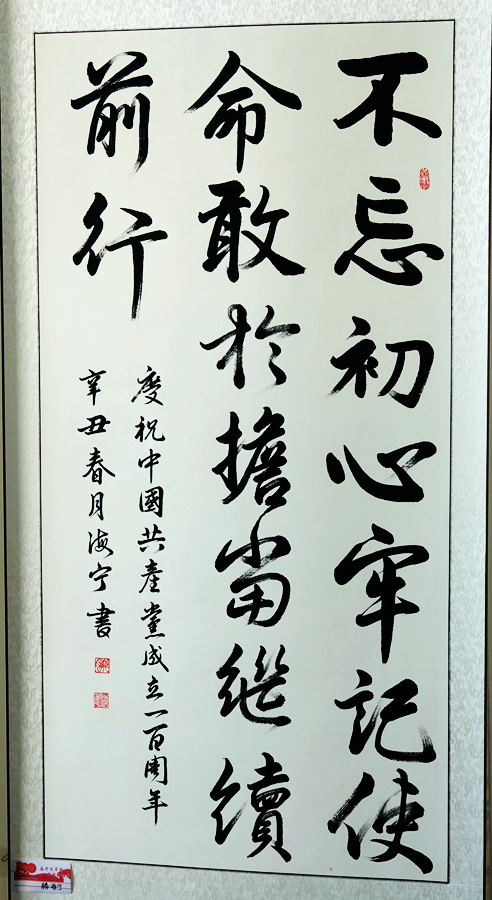 不忘初心牢记使
命敢於擔当继續
前行
慶祝中國共產黨成立一百周年
辛丑春月海宁書